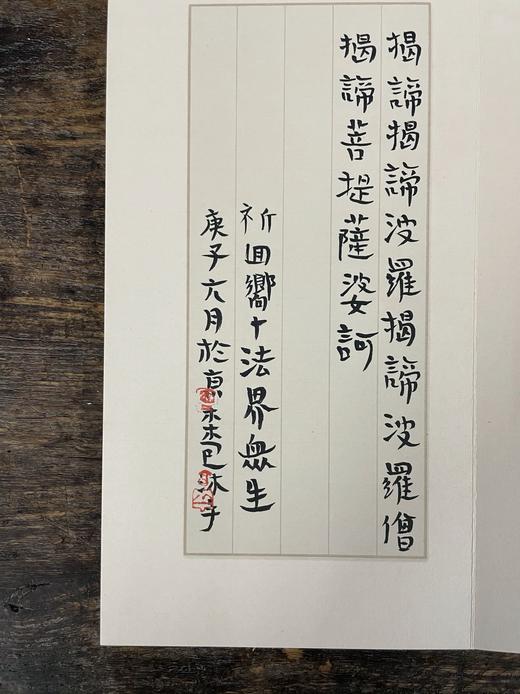 揭諦揭諦波羅揭諦波羅僧
揭諦菩提薩婆訶
祈回嚮十法界眾生
庚子六月於京